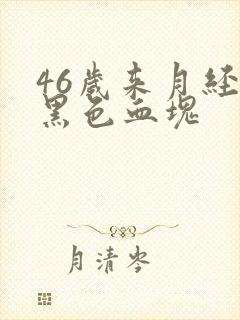 46歲来月经
黑色血塊
月清岑